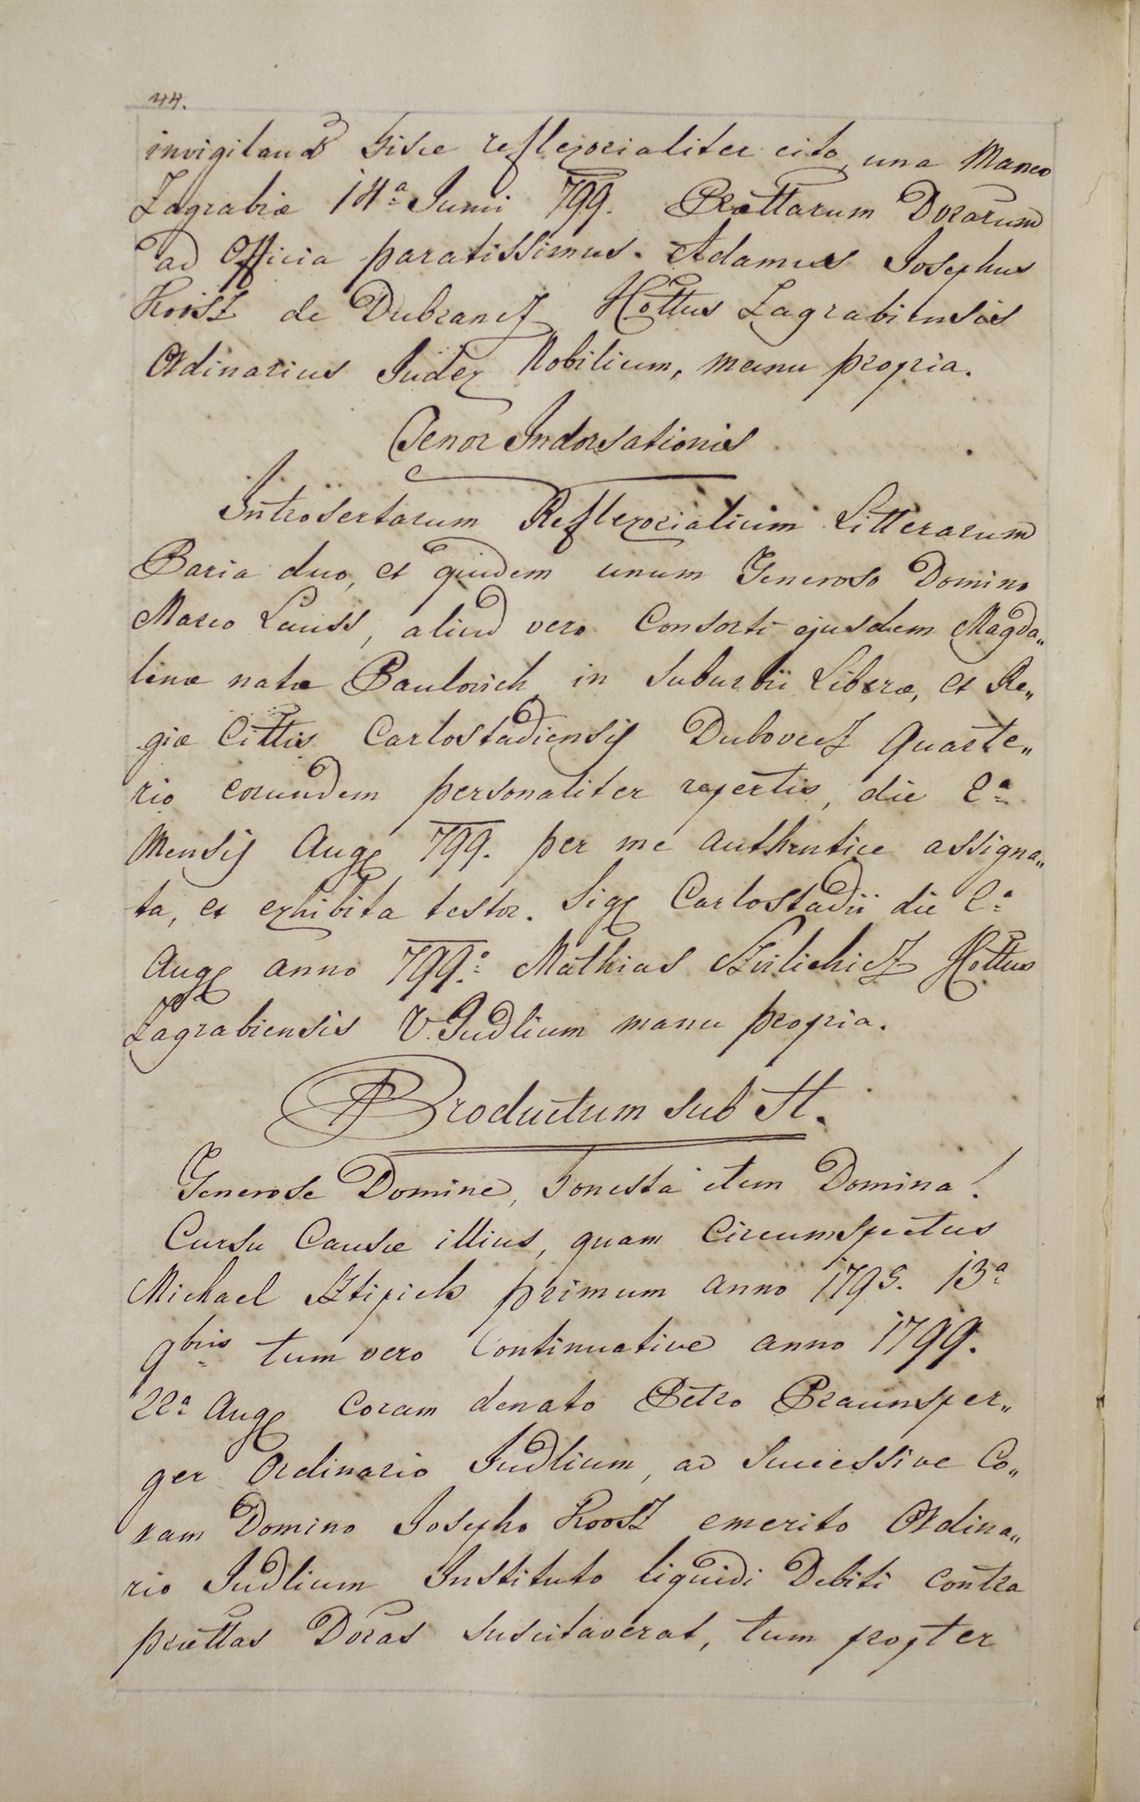 44.
invigiland hisce reflexorialiter cito, una Maneo
Zagrabiæ 14ª Junii 799. Prættarum Dorarum
ad Officia paratissimus. Adamus Josephus
Koosz de Dubrancz Cottus Zagrabiensis
Ordinarius Judex Nobilium, manu propria.
Tenor Indorsationis
Introsertarum Reflexorialium Litterarum
Paria duo, et quidem unum Generoso Domino
Marco Lauss, aliud vero Consorti ejusdem Magda„
lenæ natæ Paulovich in suburbii Liberæ, et Re„
giæ Cittis Carlostadiensis Dubovecz Quarte„
rio eorundem personaliter repertis, die 2ª
Mensis Augg 799. per me authentice assigna„
ta, et exhibita testor. Sigg Carlostadii die 2ª
Augg anno 799º Mathias Cottus
Zagrabiensis V. Judlium manu propria.
Productum sub H.
Generose Domine, honesta item Domina!
Cursu Causæ illius, quam Circumspectus
Michael Sztipich primum anno 1795. 13ª
9bris tum vero Continuative anno 1799.
22ª Augg Coram denato Petro Praunsper„
ger Ordinario Judlium, ac successive Co„
ram Domino Josepho Koosz emerito Ordina„
rio Judlium Instituto liquidi Debiti contra
prættas Doras suscitaverat, tum propter